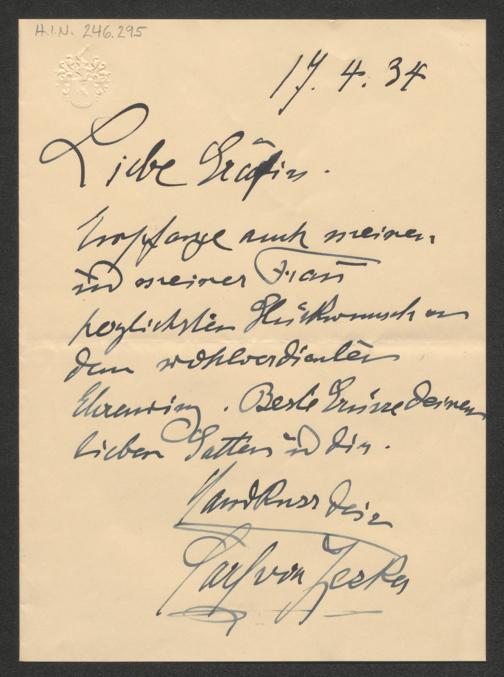 H.I.N. 246.295
17. 4. 34
Liebe Gräfin.
Empfange auch meinen
und meiner Frau
herzlichsten Glückwunsch an
dem wohlverdienten
Ehrenring. Beste Grüsse Deinem
lieben Gatten und Dir.
Handkuss Dein
Carl von Zeska